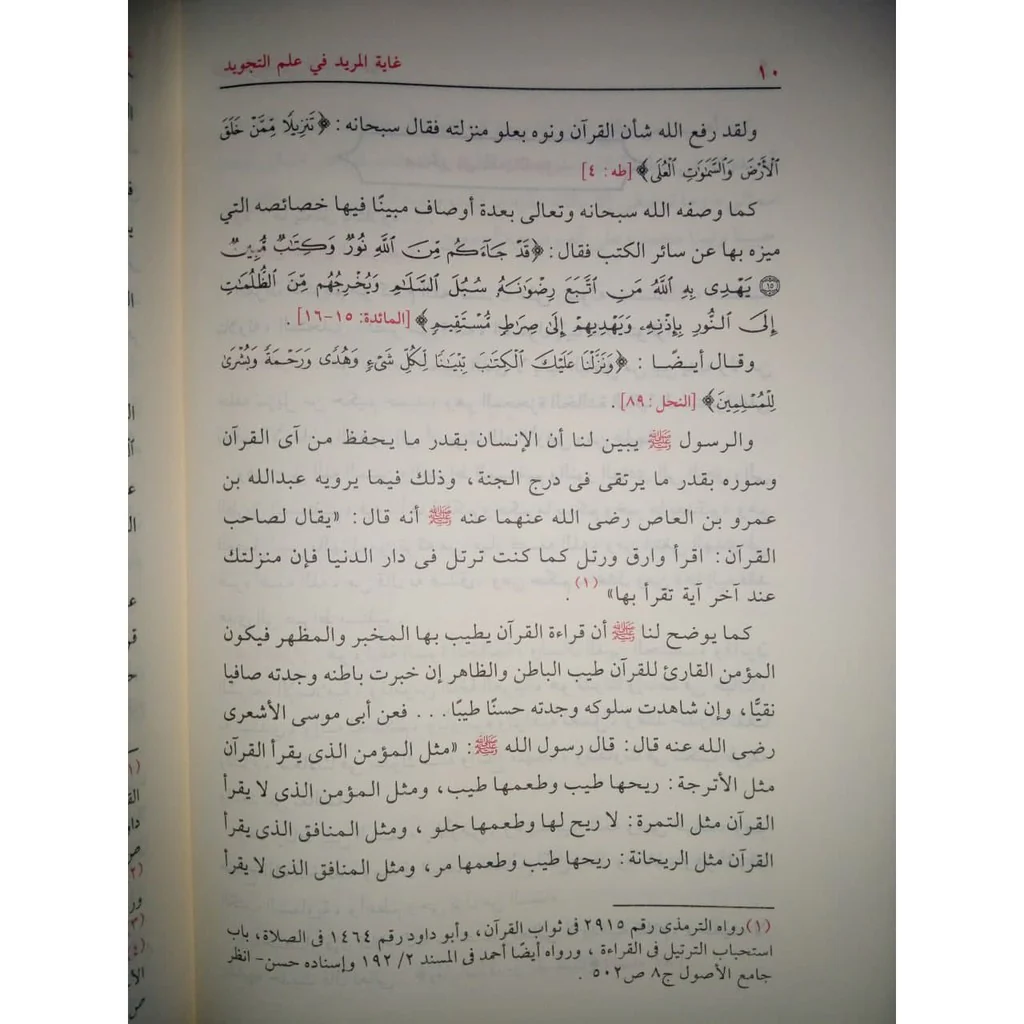 ١٠ غاية المريد في علم التجويد
ولقد رفع الله شأن القرآن ونوه بعلو منزلته فقال سبحانه: ﴿تَنزِيلًا مِّمَّنْ خَلَقَ
ٱلْأَرْضَ وَٱلسَّمَٰوَٰتِ ٱلْعُلَى﴾ [طه: ٤]
كما وصفه الله سبحانه وتعالى بعدة أوصاف مبينًا فيها خصائصه التي
ميزه بها عن سائر الكتب فقال: ﴿قَدْ جَآءَكُم مِّنَ ٱللَّهِ نُورٌ وَكِتَٰبٌ مُّبِينٌ
۝١٥ يَهْدِى بِهِ ٱللَّهُ مَنِ ٱتَّبَعَ رِضْوَٰنَهُۥ سُبُلَ ٱلسَّلَٰمِ وَيُخْرِجُهُم مِّنَ ٱلظُّلُمَٰتِ
إِلَى ٱلنُّورِ بِإِذْنِهِۦ وَيَهْدِيهِمْ إِلَىٰ صِرَٰطٍ مُّسْتَقِيمٍ﴾ [المائدة: ١٥-١٦].
وقال أيضًا: ﴿وَنَزَّلْنَا عَلَيْكَ ٱلْكِتَٰبَ تِبْيَٰنًا لِّكُلِّ شَىْءٍ وَهُدًى وَرَحْمَةً وَبُشْرَىٰ
لِلْمُسْلِمِينَ﴾ [النحل: ٨٩].
والرسول ﷺ يبين لنا أن الإنسان بقدر ما يحفظ من آى القرآن
وسوره بقدر ما يرتقى فى درج الجنة، وذلك فيما يرويه عبدالله بن
عمرو بن العاص رضى الله عنهما عنه ﷺ أنه قال: «يقال لصاحب
القرآن: اقرأ وارق ورتل كما كنت ترتل في دار الدنيا فإن منزلتك
عند آخر آية تقرأ بها» (١).
كما يوضح لنا ﷺ أن قراءة القرآن يطيب بها المخبر والمظهر فيكون
المؤمن القارئ للقرآن طيب الباطن والظاهر إن خبرت باطنه وجدته صافيا
نقيًّا، وإن شاهدت سلوكه وجدته حسنًا طيبًا... فعن أبى موسى الأشعرى
رضى الله عنه قال: قال رسول الله ﷺ: «مثل المؤمن الذى يقرأ القرآن
مثل الأترجة: ريحها طيب وطعمها طيب، ومثل المؤمن الذى لا يقرأ
القرآن مثل التمرة: لا ريح لها وطعمها حلو، ومثل المنافق الذى يقرأ
القرآن مثل الريحانة: ريحها طيب وطعمها مر، ومثل المنافق الذى لا يقرأ
(١) رواه الترمذى رقم ٢٩١٥ فى ثواب القرآن، وأبو داود رقم ١٤٦٤ فى الصلاة، باب
استحباب الترتيل فى القراءة، ورواه أيضًا أحمد فى المسند ٢/ ١٩٢ وإسناده حسن- انظر
جامع الأصول ج٨ ص٥٠٢.